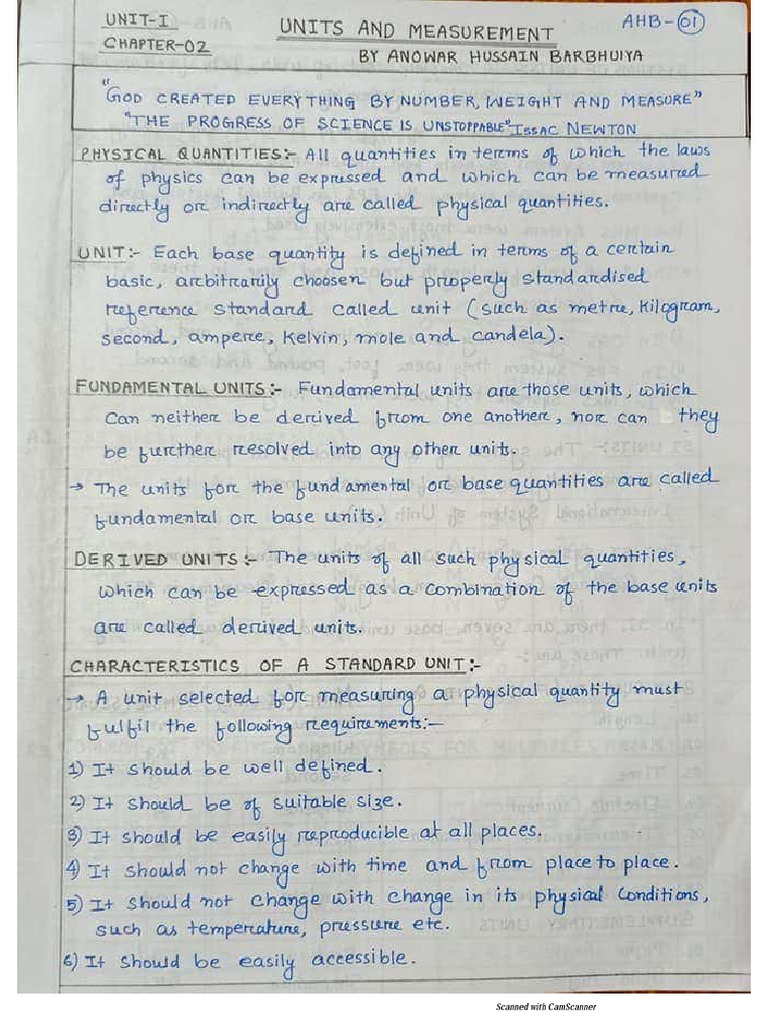 UNIT-I
CHAPTER-02
UNITS AND MEASUREMENT
AHB-01
BY ANOWAR HUSSAIN BARBHUIYA
"GOD CREATED EVERYTHING BY NUMBER, WEIGHT AND MEASURE"
"THE PROGRESS OF SCIENCE IS UNSTOPPABLE" ISSAC NEWTON
PHYSICAL QUANTITIES:- All quantities in terms of which the laws
of physics can be expressed and which can be measured
directly or indirectly are called physical quantities.
UNIT:- Each base quantity is defined in terms of a certain
basic, arbitrarily choosen but properly standardised
reference standard called unit (such as metre, kilogram,
second, ampere, Kelvin, mole and candela).
FUNDAMENTAL UNITS:- Fundamental units are those units, which
can neither be derived from one another, nor can they
be further resolved into any other units.
→ The units for the fundamental or base quantities are called
fundamental or base units.
DERIVED UNITS:- The units of all such physical quantities,
which can be expressed as a combination of the base units
are called derived units.
CHARACTERISTICS OF A STANDARD UNIT:-
→ A unit selected for measuring a physical quantity must
fulfil the following requirements:-
1) It should be well defined.
2) It should be of suitable size.
3) It should be easily reproducible at all places.
4) It should not change with time and from place to place.
5) It should not change with change in its physical conditions,
such as temperature, pressure etc.
6) It should be easily accessible.
Scanned with CamScanner